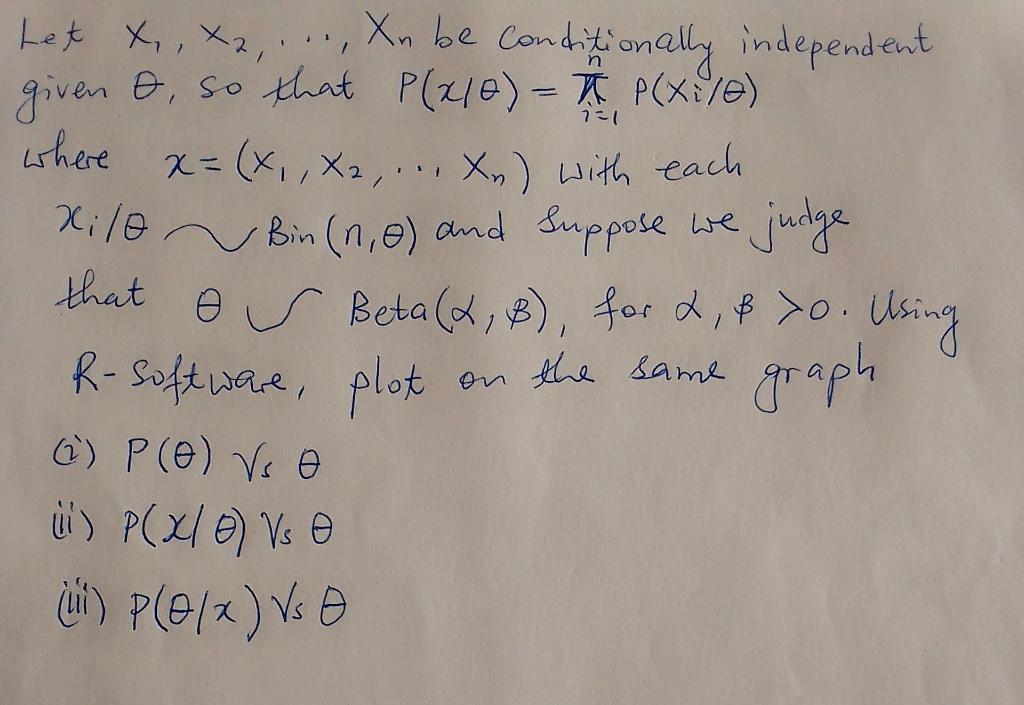 Let X₁, X₂, ..., Xn be Conditionally independent
given θ, so that P(x/θ) = π P(Xi/θ)
n
i=1
where x = (X₁, X₂, ... Xn) with each
xi/θ ~ Bin(n,θ) and Suppose we judge
that θ ~ Beta(α, β), for α, β >0. Using
R-Software, plot on the same graph
(i) P(θ) Vs θ
(ii) P(x/θ) Vs θ
(iii) P(θ/x) Vs θ